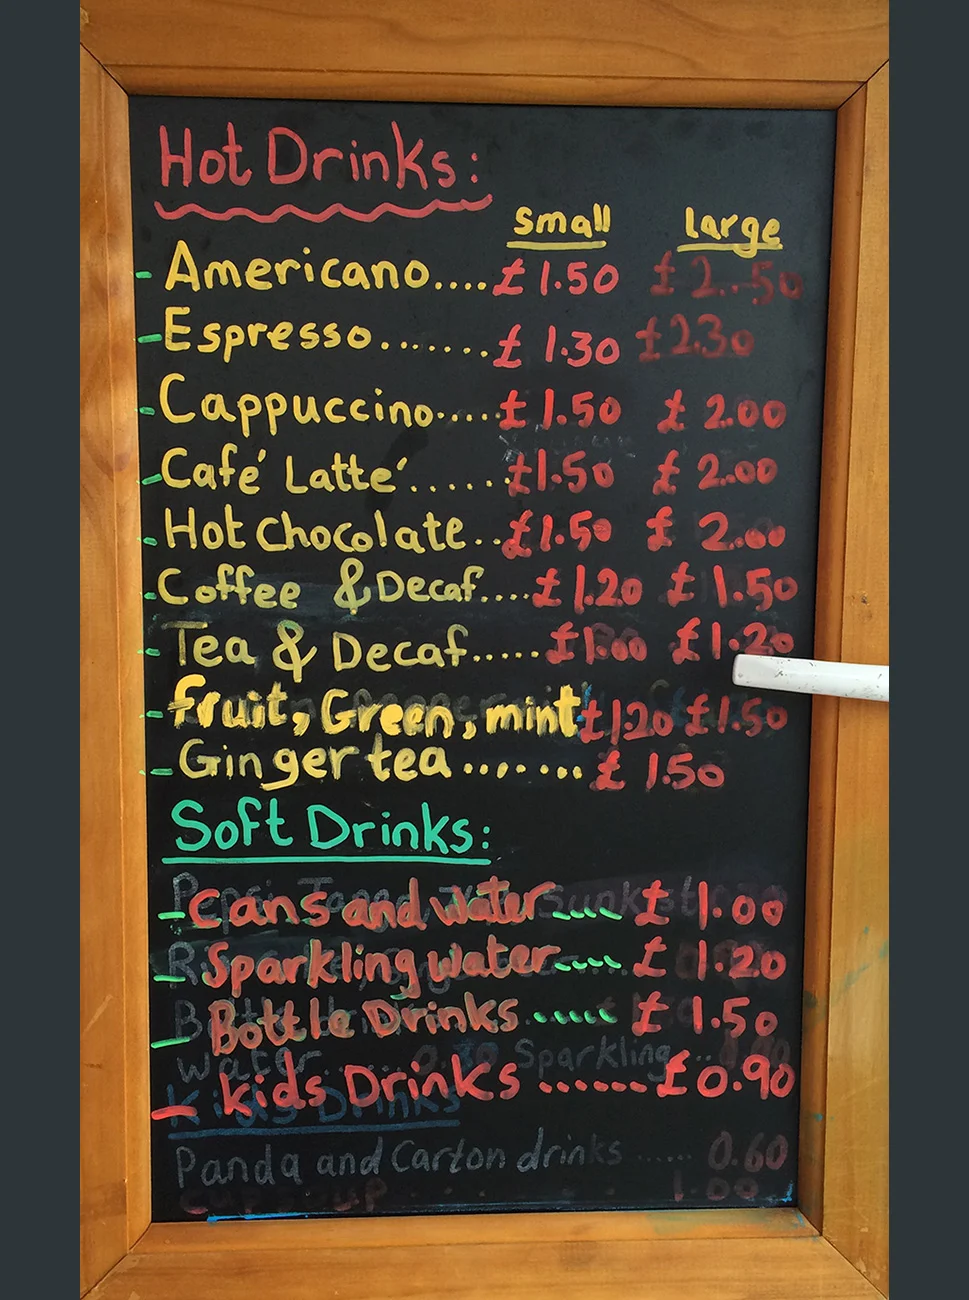 Hot Drinks:
small large
- Americano....£1.50 £2.50
- Espresso.......£1.30 £2.30
- Cappuccino.....£1.50 £2.00
- Café Latte´......£1.50 £2.00
- Hot chocolate..£1.50 £2.00
- Coffee & Decaf....£1.20 £1.50
- Tea & Decaf.....£1.00 £1.20
- fruit, Green, mint £1.20 £1.50
- Ginger tea.......£1.50
Soft Drinks:
- cans and water.... £1.00
- Sparkling water.... £1.20
- Bottle Drinks..... £1.50
Water.... 0.80 Sparkling..
- kids Drinks......£0.90
Kids Drinks
Panda and Carton drinks...... 0.60
1.00